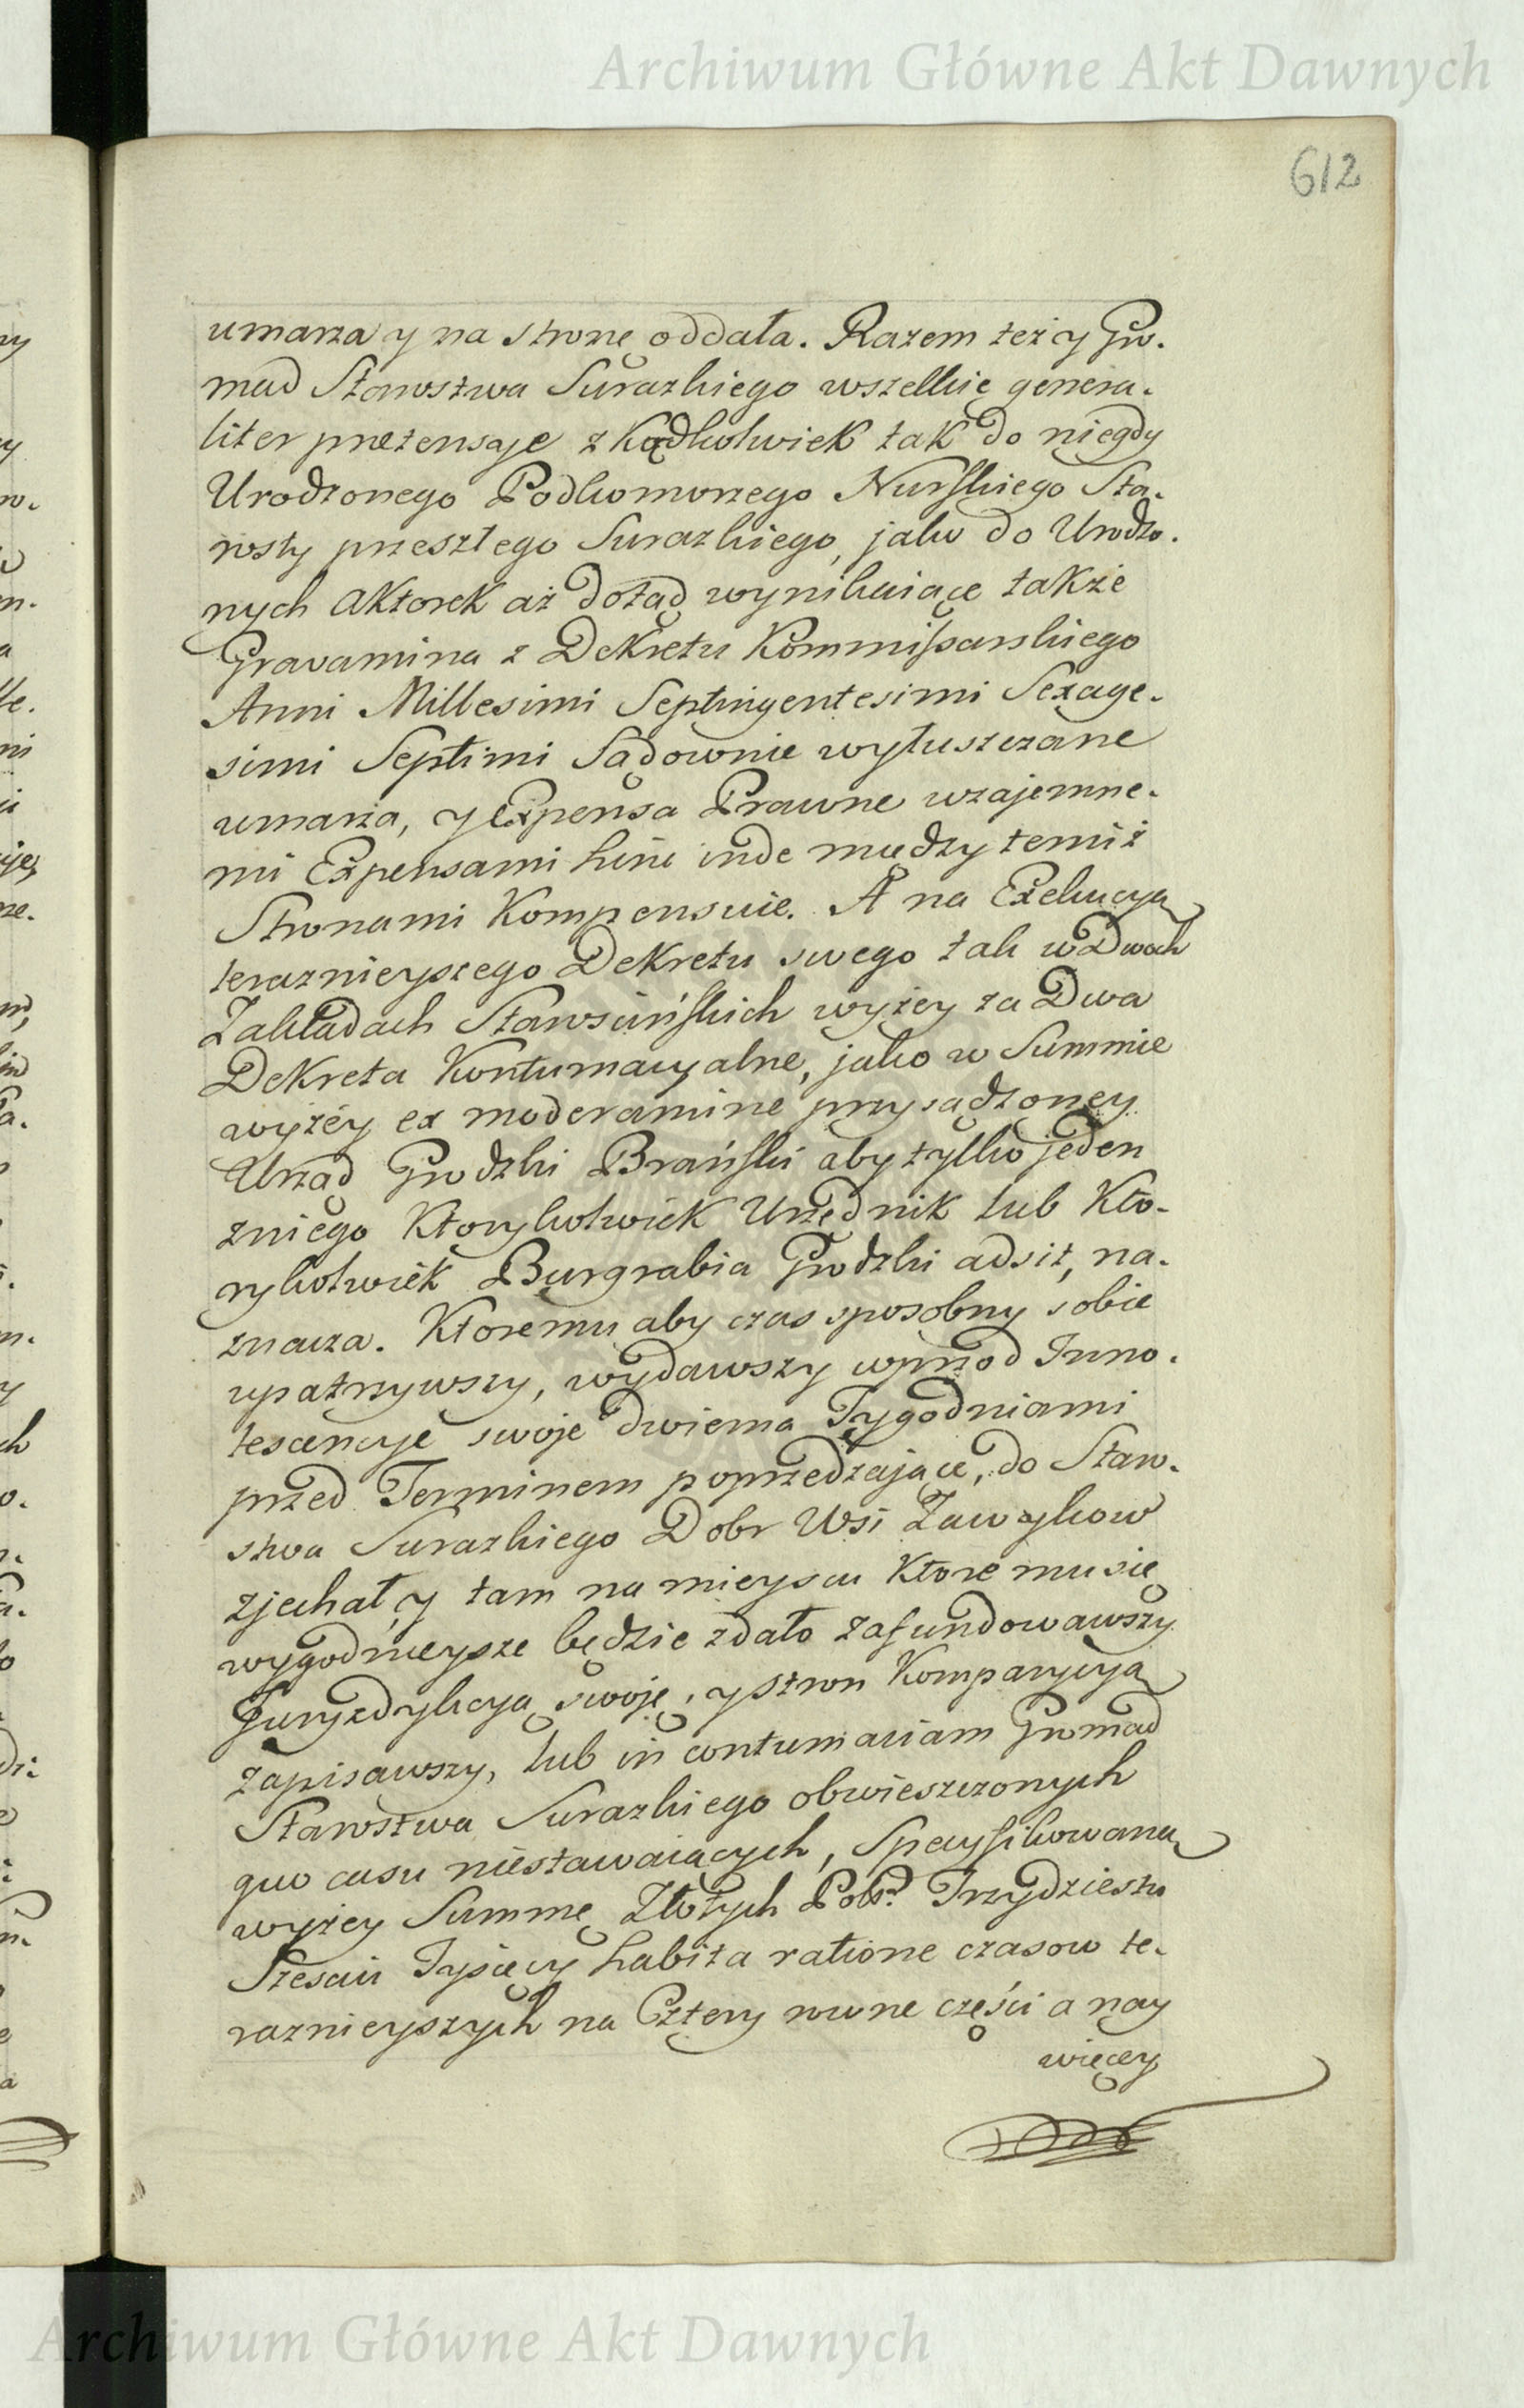 Archiwum Główne Akt Dawnych
612
umarza y na stronę oddała. Razem też y Gro-
mad Starostwa Surazkiego wszelkie genera-
liter pretensye z kądkolwiek tak do niegdy
Urodzonego Podkomorzego Nurskiego Sta-
rosty przeszłego Surazkiego, jako do Urodzo-
nych Aktorek aż dotąd wynikaiące także
Gravamina z Dekretu Kommissarskiego
Anni Millesimi Septingentesimi Sexage-
simi Septimi Sądownie wytuszczane
umarza, y Expensa Prawne wzajemne-
mi Expensami hinc inde między temiż
Stronami Kompensuie. A na Exekucyą
teraznieyszego Dekretu swego tak w Dwoch
Zakładach Starościńskich wyżey za Dwa
Dekreta Kontumacyalne, jako w Summie
wyżey ex moderamine przysądzoney
Urząd Grodzki Brański aby tylko jeden
zniego Ktorykolwiek Urzędnik lub Kto-
rykolwiek Burgrabia Grodzki adsit, na-
znacza. Ktoremu aby czas sposobny sobie
upatrzywszy, wydawszy wprzod Inno-
tescencye swoje dwiema Tygodniami
przed Terminem poprzedzające, do Staro-
stwa Surazkiego Dobr Wsi Zawykow
zjechał, y tam na mieyscu Ktore mu się
wygodnieysze będzie zdało zafundowawszy
Juryzdykcyą swoję, y stron Komparycyą
zapisawszy, lub in contumaciam Gromad
Starostwa Surazkiego obwieszczonych
quo casu niestawaiących, Specyfikowaną
wyżey Summę Złotych Pols. Trzydziestu
Sześciu Tysięcy habita ratione czasow te-
raznieyszych na Cztery rowne części a nay
więcey
Archiwum Główne Akt Dawnych